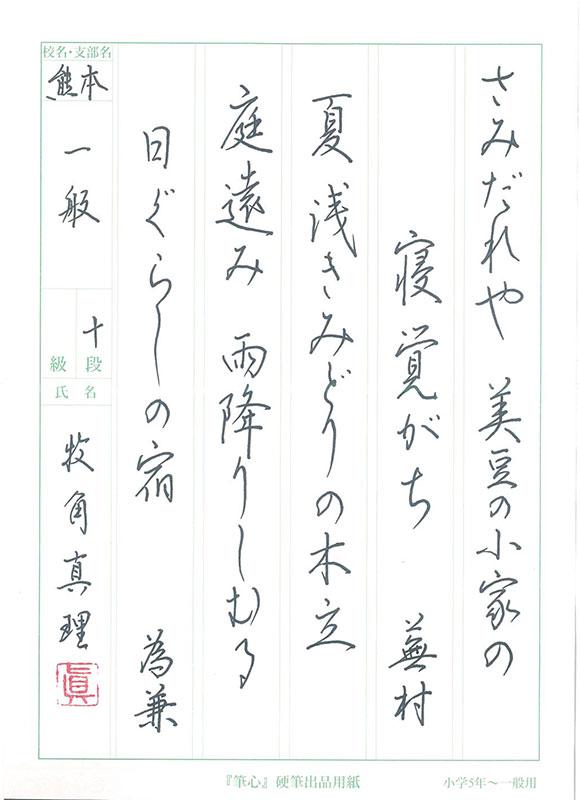 さみだれや　美豆の小家の
寝覚がち　蕪村
夏浅きみどりの木立
庭遠み　雨降りしむる
日ぐらしの宿　為兼
校名・支部名
熊本
一般
十段
級
氏名
牧角真理
眞
『筆心』硬筆出品用紙
小学5年〜一般用